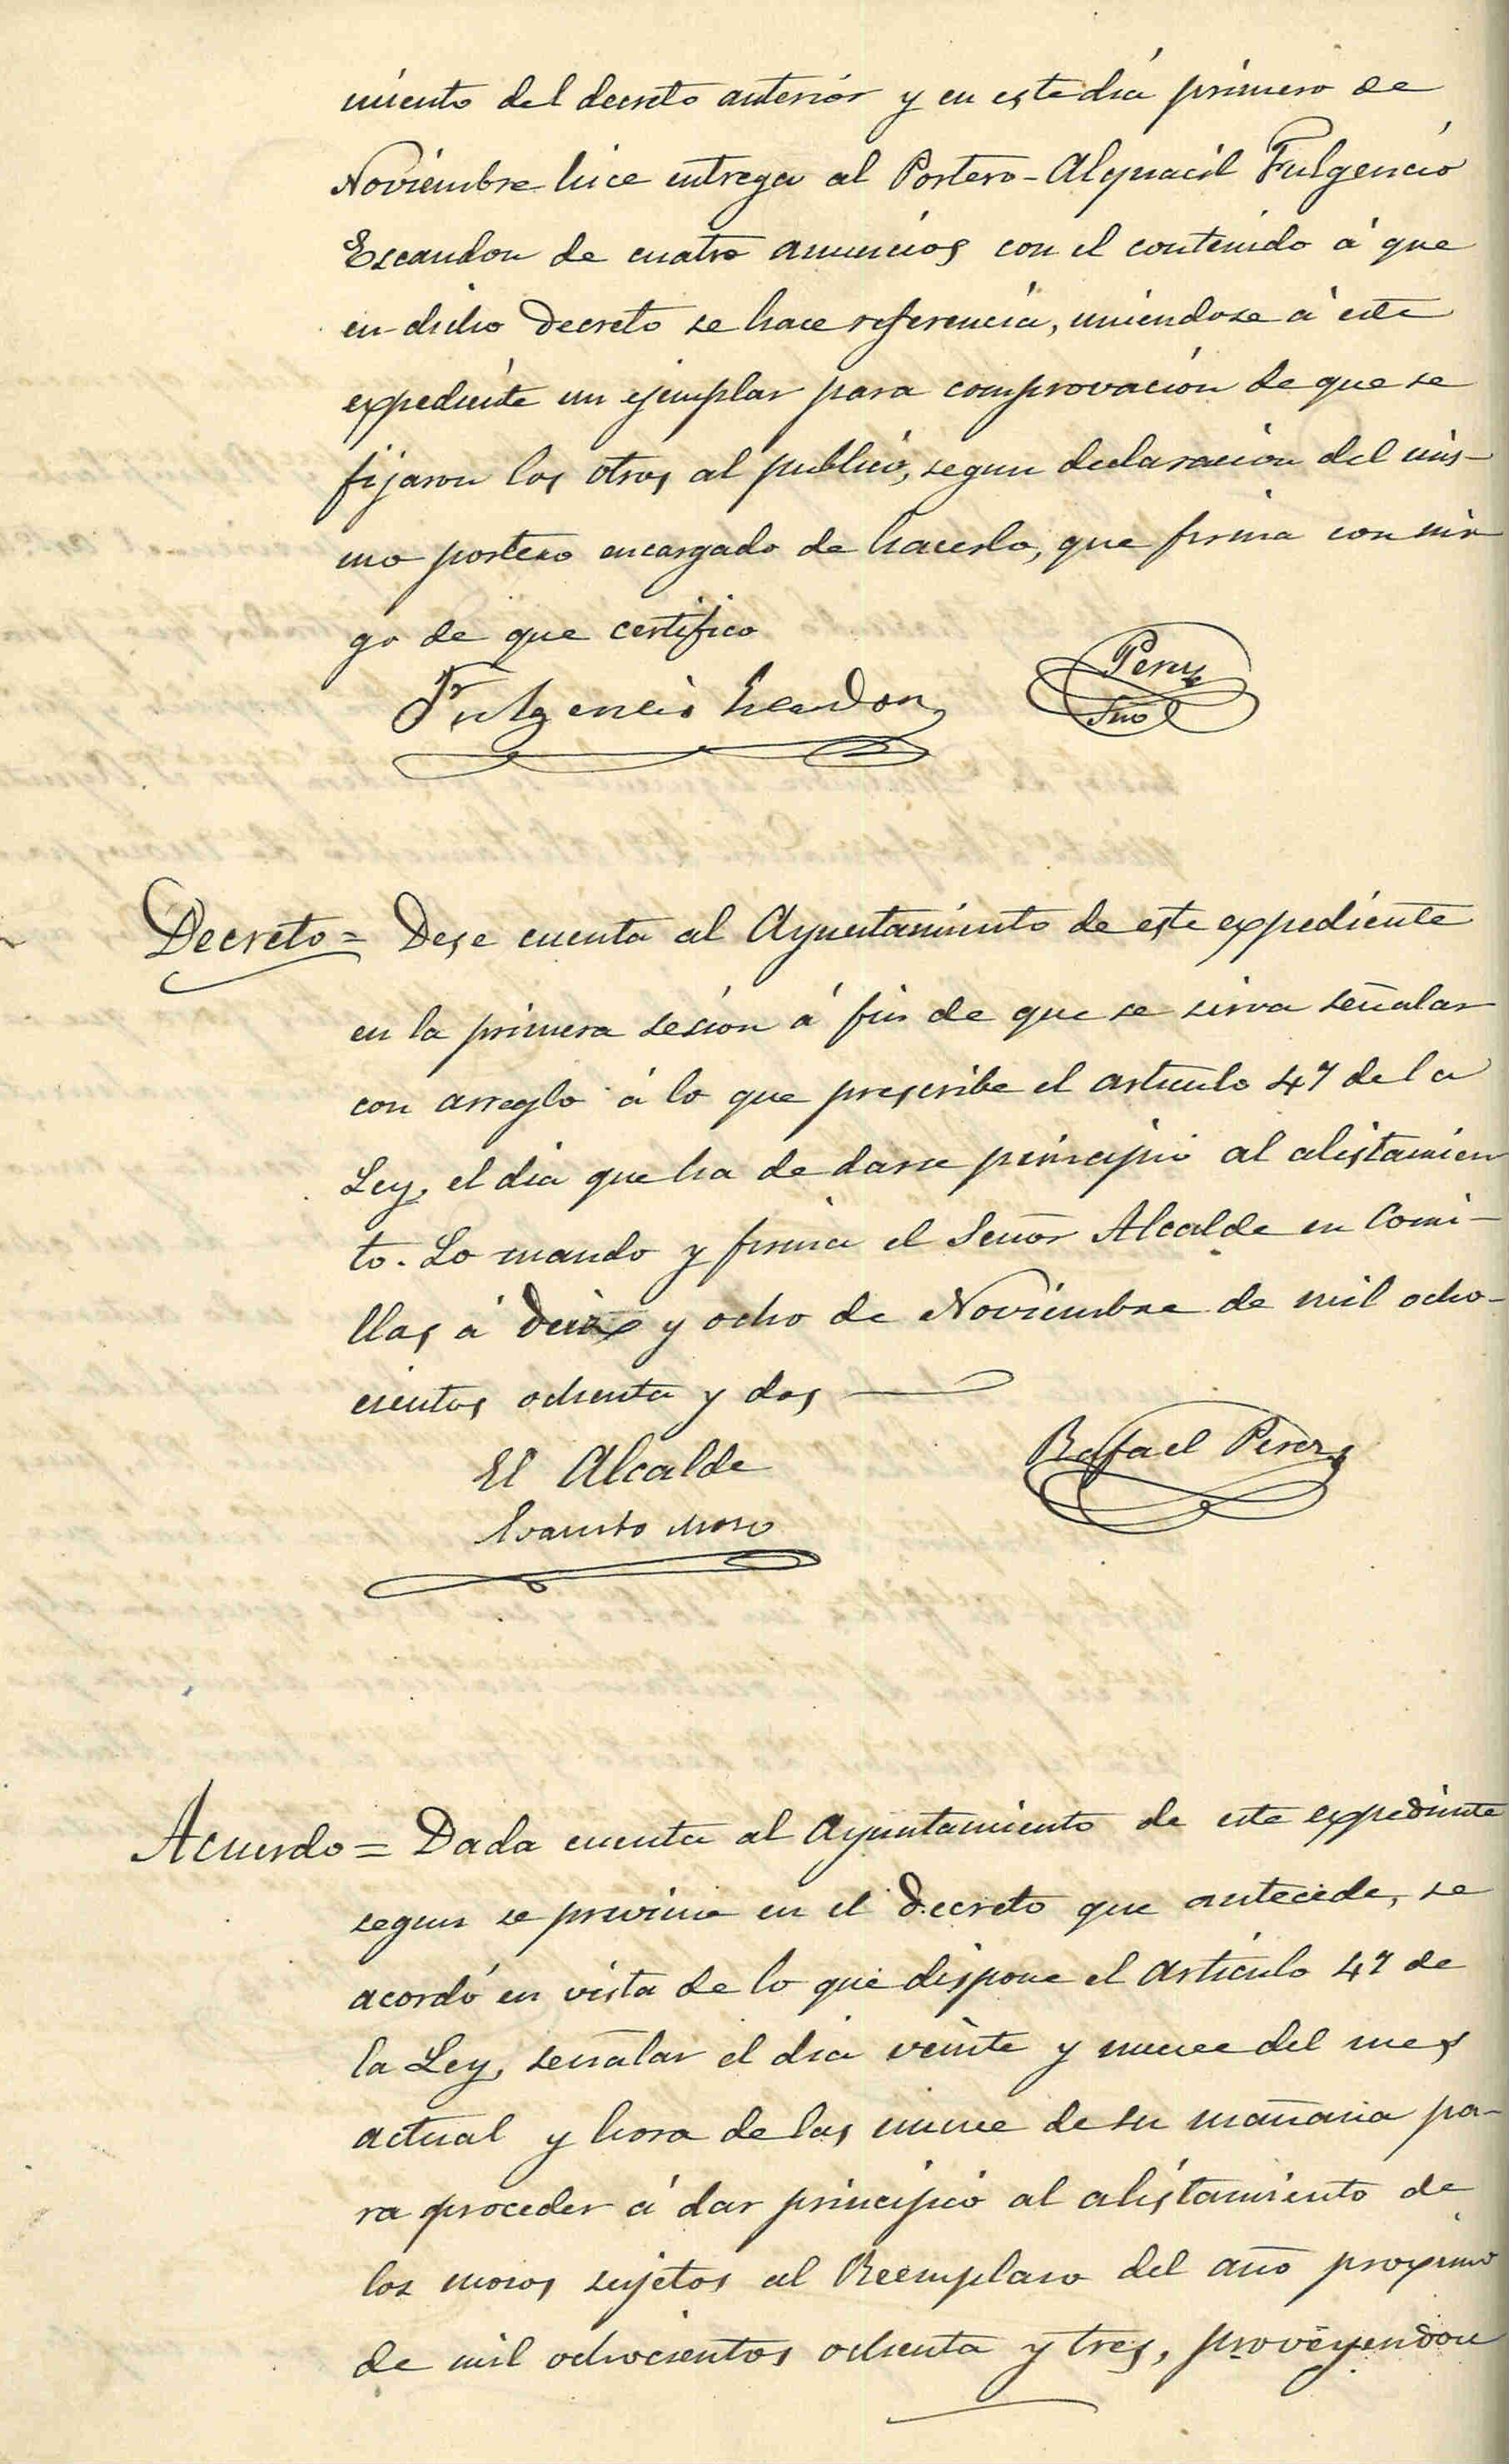 miento del decreto anterior y en este dia primero de
Noviembre hice entrega al Portero-Alguacil Fulgencio
Escandon de cuatro anuncios con el contenido á que
en dicho Decreto se hace referencia, uniendose á este
expediente un ejemplar para comprovacion de que se
fijaron los otros al publico, segun declaracion del mis-
mo portero encargado de hacerlo, que firma con mi
go de que certifico
Fulgencio Escandon
Perez
Srio
Decreto = Dese cuenta al Ayuntamiento de este expediente
en la primera sesion á fin de que se sirva señalar
con arreglo á lo que prescribe el articulo 47 de la
Ley, el dia que ha de darse principio al alistamien
to. Lo mando y firma el Señor Alcalde en Comi-
llas á diez y ocho de Noviembre de mil ocho-
cientos ochenta y dos
El Alcalde
Rafael Perez
Evaristo Moro
Acuerdo = Dada cuenta al Ayuntamiento de este expediente
segun se previene en el Decreto que antecede, se
acordó en vista de lo que dispone el Articulo 47 de
la Ley, señalar el dia veinte y nueve del mes
actual y hora de las nueve de su mañana pa-
ra proceder á dar principio al alistamiento de
los mosos sujetos al Reemplaso del año proximo
de mil ochocientos ochenta y tres, proveyendose